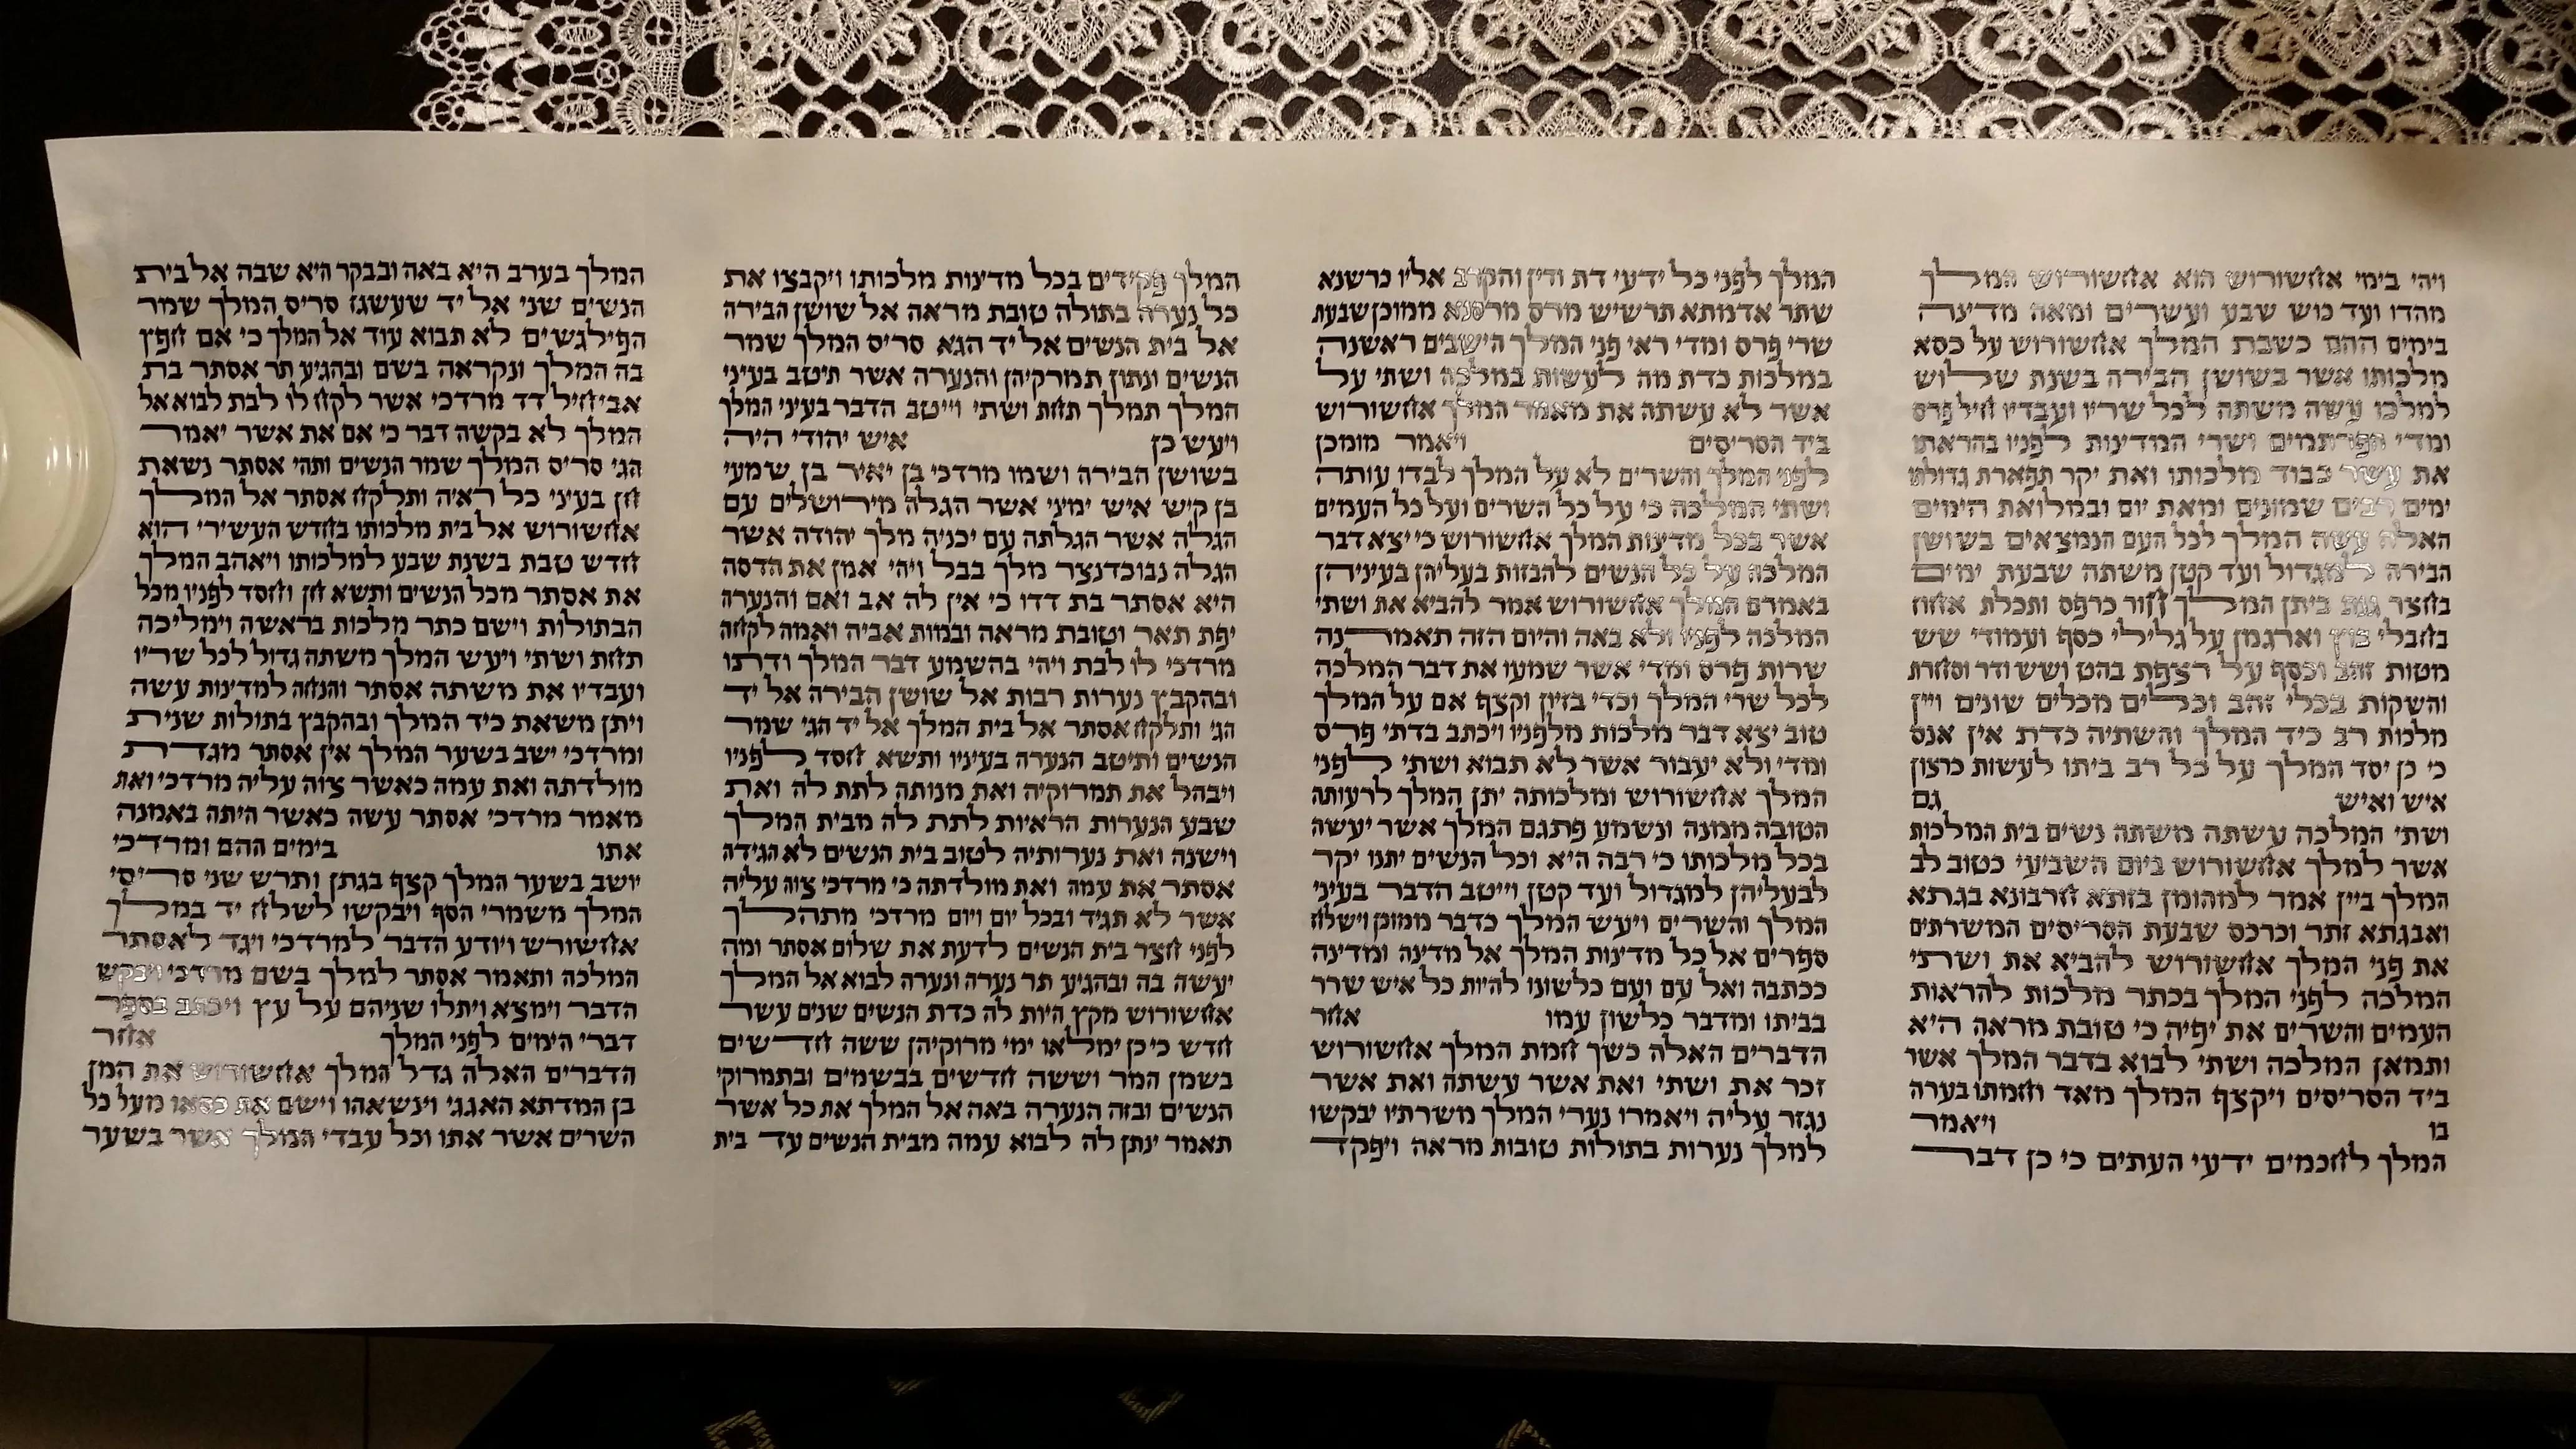 ויהי בימי אחשורוש הוא אחשורוש המלך
מהדו ועד כוש שבע ועשרים ומאה מדינה
בימים ההם כשבת המלך אחשורוש על כסא
מלכותו אשר בשושן הבירה בשנת שלוש
למלכו עשה משתה לכל שריו ועבדיו חיל פרס
ומדי הפרתמים ושרי המדינות לפניו בהראתו
את עשר כבוד מלכותו ואת יקר תפארת גדולתו
ימים רבים שמונים ומאת יום ובמלואת הימים
האלה עשה המלך לכל העם הנמצאים בשושן
הבירה למגדול ועד קטן משתה שבעת ימים
בחצר גנת ביתן המלך חור כרפס ותכלת אחוז
בחבלי בוץ וארגמן על גלילי כסף ועמודי שש
מטות זהב וכסף על רצפת בהט ושש ודר וסחרת
והשקות בכלי זהב וכלים מכלים שונים ויין
מלכות רב כיד המלך והשתיה כדת אין אנס
כי כן יסד המלך על כל רב ביתו לעשות כרצון
איש ואיש גם
ושתי המלכה עשתה משתה נשים בית המלכות
אשר למלך אחשורוש ביום השביעי כטוב לב
המלך ביין אמר למהומן בזתא חרבונא בגתא
ואבגתא זתר וכרכס שבעת הסריסים המשרתים
את פני המלך אחשורוש להביא את ושתי
המלכה לפני המלך בכתר מלכות להראות
העמים והשרים את יפיה כי טובת מראה היא
ותמאן המלכה ושתי לבוא בדבר המלך אשר
ביד הסריסים ויקצף המלך מאד וחמתו בערה
בו ויאמר
המלך לחכמים ידעי העתים כי כן דבר
המלך לפני כל ידעי דת ודין והקרב אליו כרשנא
שתר אדמתא תרשיש מרס מרסנא ממוכן שבעת
שרי פרס ומדי ראי פני המלך הישבים ראשנה
במלכות כדת מה לעשות במלכה ושתי על
אשר לא עשתה את מאמר המלך אחשורוש
ביד הסריסים ויאמר מומכן
לפני המלך והשרים לא על המלך לבדו עותה
ושתי המלכה כי על כל השרים ועל כל העמים
אשר בכל מדינות המלך אחשורוש כי יצא דבר
המלכה על כל הנשים להבזות בעליהן בעיניהן
באמרם המלך אחשורוש אמר להביא את ושתי
המלכה לפניו ולא באה והיום הזה תאמרנה
שרות פרס ומדי אשר שמעו את דבר המלכה
לכל שרי המלך וכדי בזיון וקצף אם על המלך
טוב יצא דבר מלכות מלפניו ויכתב בדתי פרס
ומדי ולא יעבור אשר לא תבוא ושתי לפני
המלך אחשורוש ומלכותה יתן המלך לרעותה
הטובה ממנה ונשמע פתגם המלך אשר יעשה
בכל מלכותו כי רבה היא וכל הנשים יתנו יקר
לבעליהן למגדול ועד קטן וייטב הדבר בעיני
המלך והשרים ויעש המלך כדבר ממוכן וישלח
ספרים אל כל מדינות המלך אל מדינה ומדינה
ככתבה ואל עם ועם כלשונו להיות כל איש שרר
בביתו ומדבר כלשון עמו אחר
הדברים האלה כשך חמת המלך אחשורוש
זכר את ושתי ואת אשר עשתה ואת אשר
נגזר עליה ויאמרו נערי המלך משרתיו יבקשו
למלך נערות בתולות טובות מראה ויפקד
המלך פקידים בכל מדינות מלכותו ויקבצו את
כל נערה בתולה טובת מראה אל שושן הבירה
אל בית הנשים אל יד הגא סריס המלך שמר
הנשים ונתון תמרקיהן והנערה אשר תיטב בעיני
המלך תמלך תחת ושתי וייטב הדבר בעיני המלך
ויעש כן איש יהודי היה
בשושן הבירה ושמו מרדכי בן יאיר בן שמעי
בן קיש איש ימיני אשר הגלה מירושלים עם
הגלה אשר הגלתה עם יכניה מלך יהודה אשר
הגלה נבוכדנצר מלך בבל ויהי אמן את הדסה
היא אסתר בת דדו כי אין לה אב ואם והנערה
יפת תאר וטובת מראה ובמות אביה ואמה לקחה
מרדכי לו לבת ויהי בהשמע דבר המלך ודתו
ובהקבץ נערות רבות אל שושן הבירה אל יד
הגי ותלקח אסתר אל בית המלך אל יד הגי שמר
הנשים ותיטב הנערה בעיניו ותשא חסד לפניו
ויבהל את תמרוקיה ואת מנותה לתת לה ואת
שבע הנערות הראיות לתת לה מבית המלך
וישנה ואת נערותיה לטוב בית הנשים לא הגידה
אסתר את עמה ואת מולדתה כי מרדכי צוה עליה
אשר לא תגיד ובכל יום ויום מרדכי מתהלך
לפני חצר בית הנשים לדעת את שלום אסתר ומה
יעשה בה ובהגיע תר נערה ונערה לבוא אל המלך
אחשורוש מקץ היות לה כדת הנשים שנים עשר
חדש כי כן ימלאו ימי מרוקיהן ששה חדשים
בשמן המר וששה חדשים בבשמים ובתמרוקי
הנשים ובזה הנערה באה אל המלך את כל אשר
תאמר ינתן לה לבוא עמה מבית הנשים עד בית
המלך בערב היא באה ובבקר היא שבה אל בית
הנשים שני אל יד שעשגז סריס המלך שמר
הפילגשים לא תבוא עוד אל המלך כי אם חפץ
בה המלך ונקראה בשם ובהגיע תר אסתר בת
אביחיל דד מרדכי אשר לקח לו לבת לבוא אל
המלך לא בקשה דבר כי אם את אשר יאמר
הגי סריס המלך שמר הנשים ותהי אסתר נשאת
חן בעיני כל ראיה ותלקח אסתר אל המלך
אחשורוש אל בית מלכותו בחדש העשירי הוא
חדש טבת בשנת שבע למלכותו ויאהב המלך
את אסתר מכל הנשים ותשא חן וחסד לפניו מכל
הבתולות וישם כתר מלכות בראשה וימליכה
תחת ושתי ויעש המלך משתה גדול לכל שריו
ועבדיו את משתה אסתר והנחה למדינות עשה
ויתן משאת כיד המלך ובהקבץ בתולות שנית
ומרדכי ישב בשער המלך אין אסתר מגדת
מולדתה ואת עמה כאשר צוה עליה מרדכי ואת
מאמר מרדכי אסתר עשה כאשר היתה באמנה
אתו בימים ההם ומרדכי
יושב בשער המלך קצף בגתן ותרש שני סריסי
המלך משמרי הסף ויבקשו לשלח יד במלך
אחשורש ויודע הדבר למרדכי ויגד לאסתר
המלכה ותאמר אסתר למלך בשם מרדכי ויבקש
הדבר וימצא ויתלו שניהם על עץ ויכתב בספר
דברי הימים לפני המלך אחר
הדברים האלה גדל המלך אחשורוש את המן
בן המדתא האגגי וינשאהו וישם את כסאו מעל כל
השרים אשר אתו וכל עבדי המלך אשר בשער